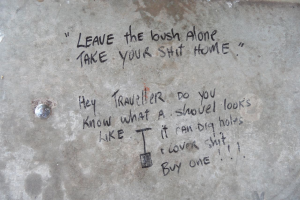 "LEAVE the bush Alone
TAKE YOUR SHIT HOME."
Hey TRAVELLER DO YOU
KNOW WHAT A SHOVEL LOOKS
LIKE IT CAN DIG holes
& COVER shit,
BUY ONE!!!